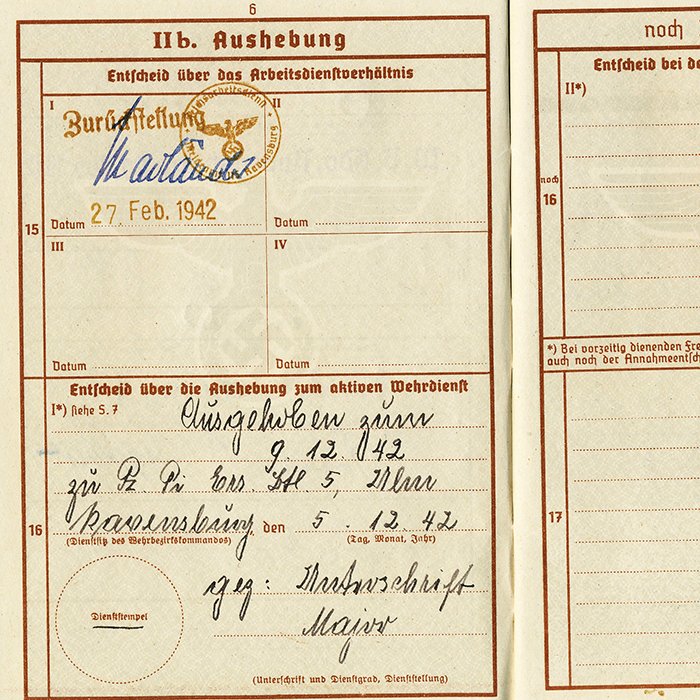 6
IIb. Aushebung
Entscheid über das Arbeitsdienstverhältnis
15
I
Zurückstellung
Reichsarbeitsdienst
Ravensburg
Datum 27 Feb. 1942
II
Datum
III
Datum
IV
Datum
Entscheid über die Aushebung zum aktiven Wehrdienst
16
I*) siehe S. 7
Ausgehoben zum
9. 12. 42
zu Pz Pi Ers. Btl 5, Ulm
Ravensburg, den 5. 12. 42
(Dienstsitz des Wehrbezirkskommandos) (Tag, Monat, Jahr)
gez: Unterschrift
Major
Dienststempel
(Unterschrift und Dienstgrad, Dienststellung)
noch
Entscheid bei de
noch
16
II*)
*) Bei vorzeitig dienenden Fre
auch noch der Annahmeentsch
17